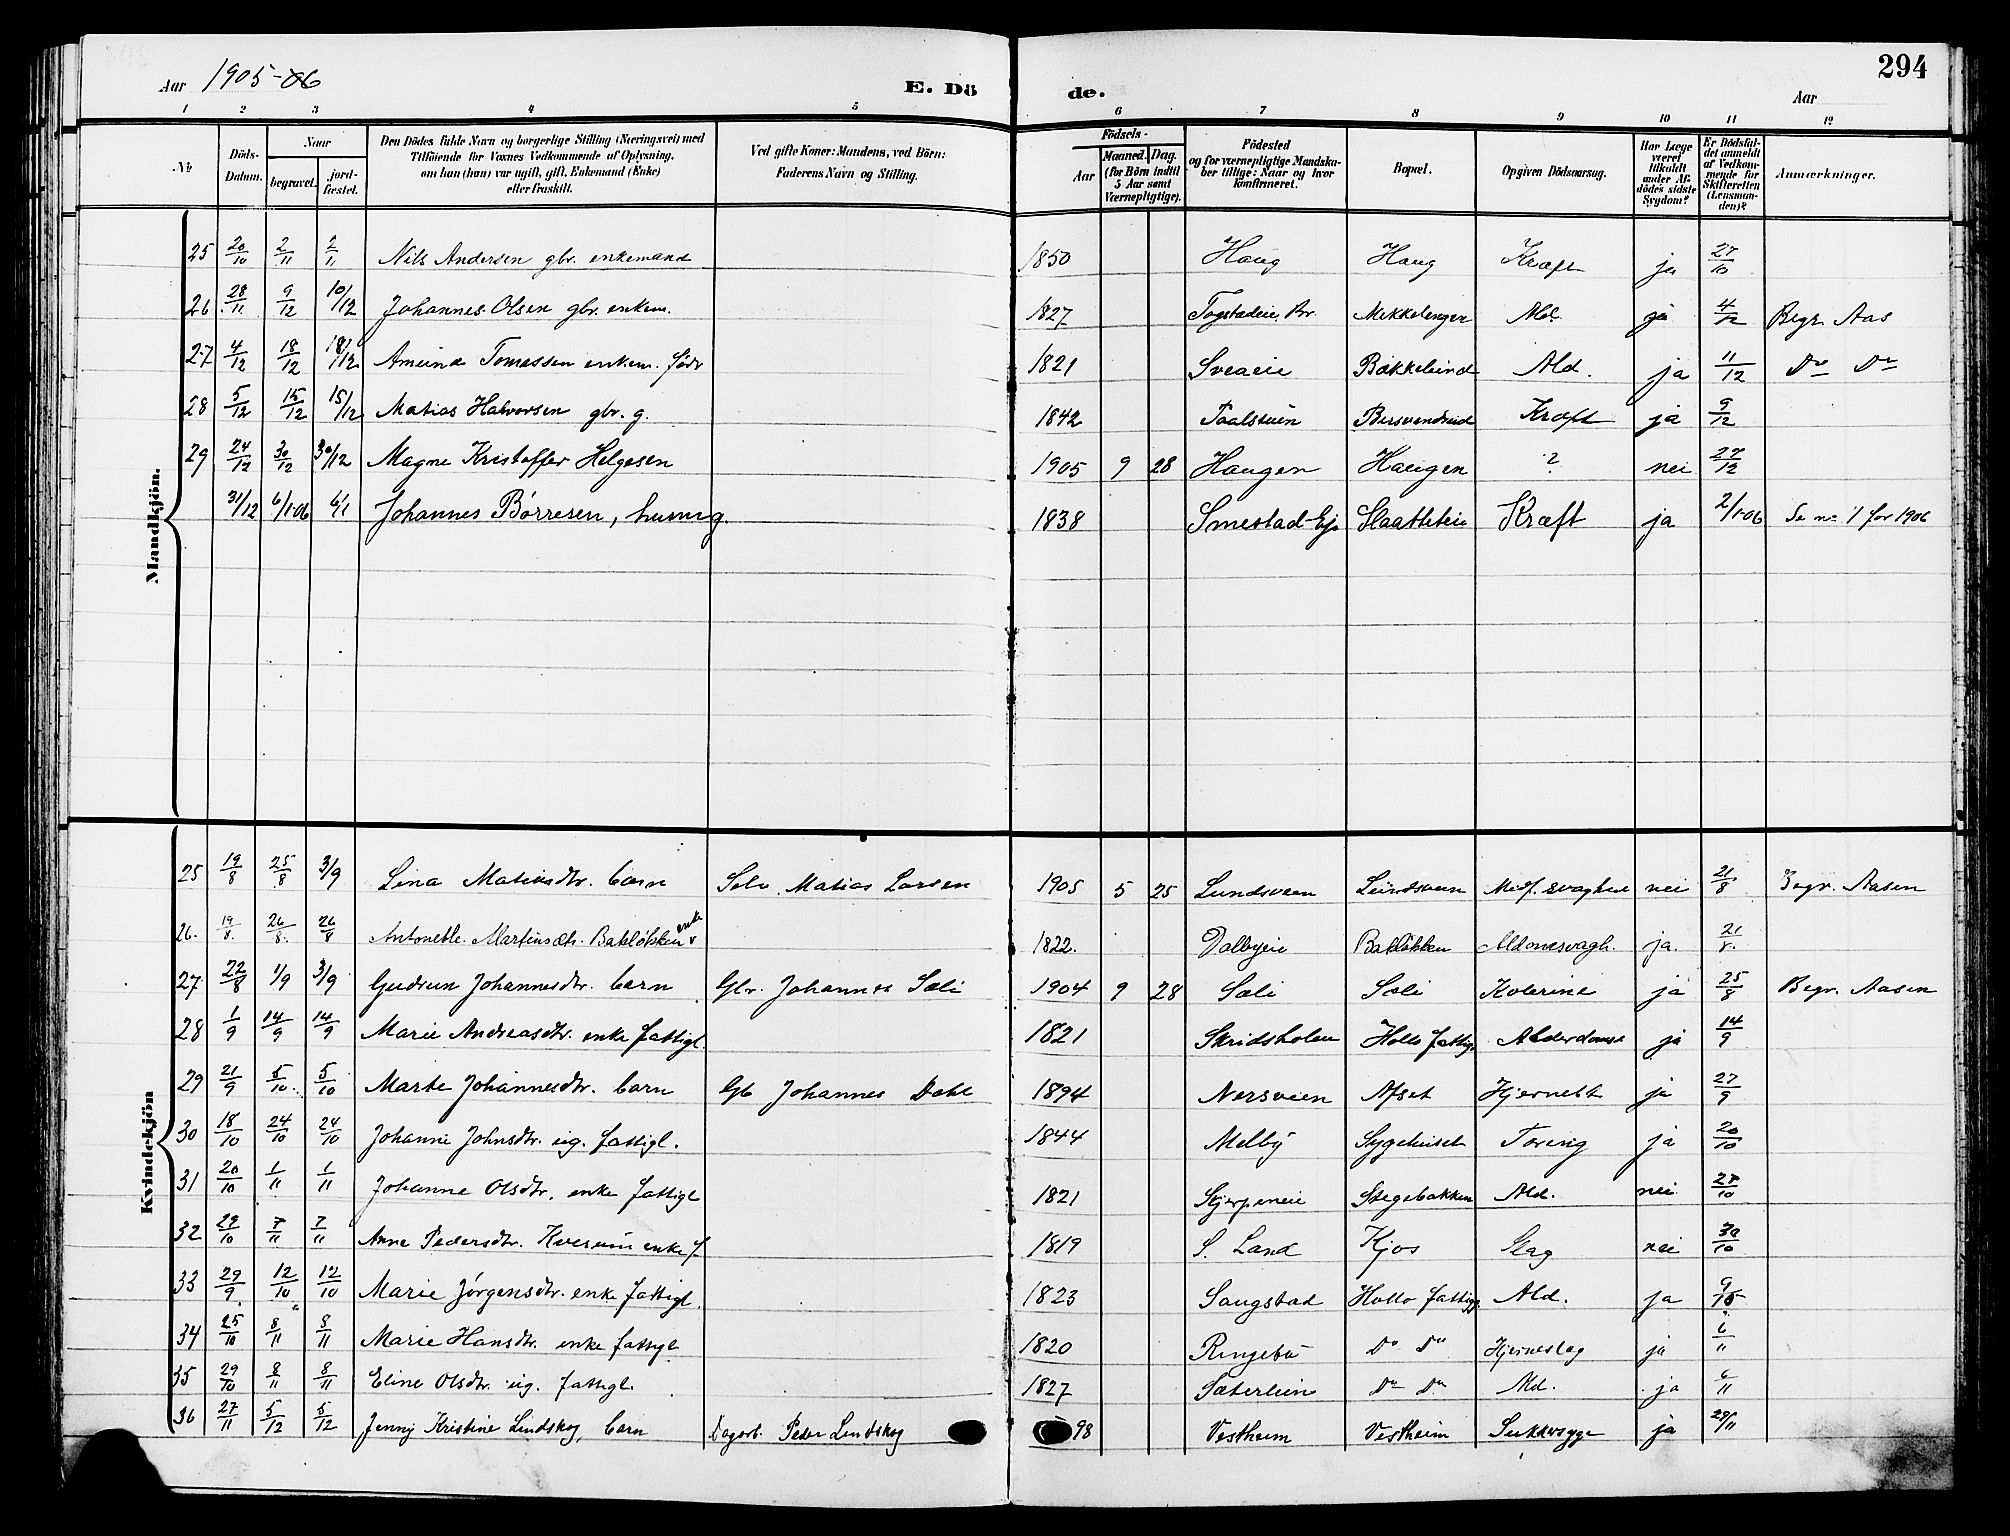 Aar 1905-06 E. Dö de. Aar 294
1 2 3 4 5 6 7 8 9 10 11 12
No Döds-Datum. Naar begravet. jord-fæstet. Den Dödes fulde Navn og borgerlige Stilling (Næringsvei) med Tilföiende for Voxnes Vedkommende af Oplysning, om han (hun) var ugift, gift, Enkemand (Enke) eller fraskilt. Ved gifte Koner: Mandens, ved Börn: Faderens Navn og Stilling. Födsels- Aar Maaned. Dag. (for Börn indtil 5 Aar samt Værnepligtige). Födested og for værnepligtige Mandskaber tillige: Naar og hvor konfirmeret. Bopæl. Opgiven Dödsaarsag. Har Læge været tilkaldt under Afdödes sidste Sygdom? Er Dödsfaldet anmeldt af Vedkommende for Skifteretten (Lensmanden)? Anmærkninger.
Mandkjön.
25 20/10 2/11 2/11 Nils Andersen gbr. enkemand 1850 Haug Haug Kræft ja 27/10
26 28/11 9/12 10/12 Johannes Olsen gbr. enkem. 1827 Ald. ja 4/12 Begr. Aas
27 4/12 18/12 18/12 Amund Tomassen enkem. 1821 Sveaeie Ald. ja 11/12 Do Do
28 5/12 15/12 15/12 Matias Halvorsen gbr. g. 1842 Kræft ja 9/12
29 24/12 30/12 30/12 Magne Kristoffer Helgesen 1905 9 28 Haugen Haugen ? nei 27/12
31/12 6/1 06 6/1 Johannes Børresen, husm. g. 1838 Smestad-Ej. Slaatteteie Kræft ja 2/1-06 Se no 1 for 1906
Kvindekjön
25 19/8 25/8 3/9 Lina Matiasdtr. barn Selv. Matias Larsen 1905 5 25 Lundsveen Lundsveen Medf. svaghed nei 21/8 Begr. Aasen
26. 19/8. 26/8. 26/8 Antonette Martinsdtr. Bakløkken enke 1822. Dalbyeie Bakløkken Aldersvagh. ja. 21/8.
27 22/8 1/9 3/9 Gudrun Johannesdtr. barn Gbr. Johannes Sæli 1904 9 28 Sæli Sæli Kolerine ja 25/8 Begr. Aasen
28 1/9 14/9 14/9 Marie Andreasdtr. enke fattigl. 1821 Skridsholen Holto fattigg. Alderdomsv ja 14/9
29 21/9 5/10. 5/10 Marte Johannesdtr. barn Gb Johannes Dahl 1894 Nersveen Afset Hjernebet ja 27/9
30 18/10 24/10 24/10 Johanne Johnsdtr. ug. fattigl. 1844 Melby Sygehuset Tæring ja 20/10
31 20/10 1/11 1/11 Johanne Olsdtr. enke fattigl 1821 Skjerpeneie Stegebakken Ald. nei 27/10
32 29/10 7/11 7/11 Anna Pedersdtr. enke f. 1819 S. Land Kjos Slag nei 30/10
33 29/9 12/10 12/10 Marie Jørgensdtr. enke fattigl. 1823 Saugstad Holto fattigg. Ald. ja
34 25/10 8/11 8/11 Marie Hansdtr. enke fattigl 1820 Ringebu Do Do Hjerneslag ja 6/11
35 29/10 8/11 8/11 Eline Olsdtr. ug. fattigl. 1827 Sæterlien Do Do Ald. ja 6/11
36 27/11 5/12 5/12 Jenny Kristine Lindskog, barn Dagarb. Peder Lindskog 98 Vestheim Vestheim Sukkersyge ja 29/11